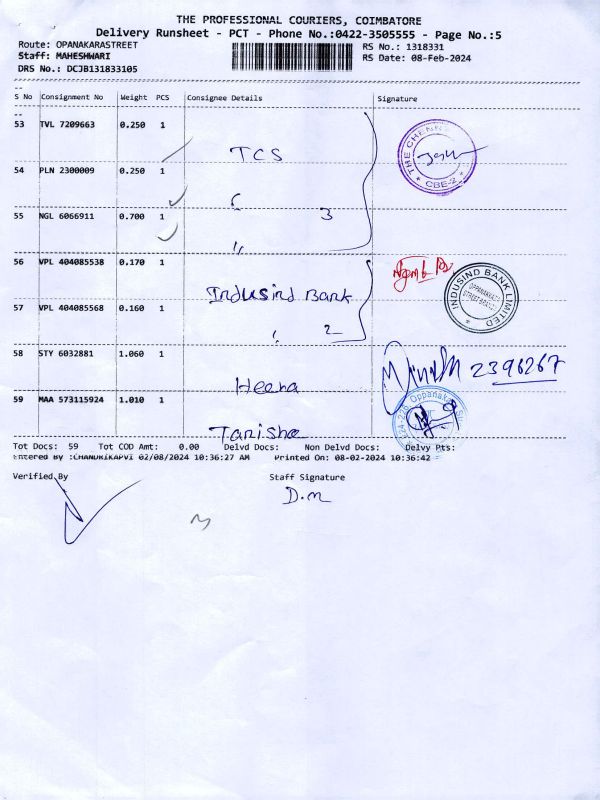 THE PROFESSIONAL COURIERS, COIMBATORE
Delivery Runsheet - PCT - Phone No.:0422-3505555 - Page No.:5
Route: OPANAKARASTREET
RS No.: 1318331
Staff: MAHESHWARI
RS Date: 08-Feb-2024
DRS No.: DCJB131833105
S No Consignment No Weight PCS Consignee Details Signature
53 TVL 7209663 0.250 1 TCS
THE CHENN
CBE-2
54 PLN 2300009 0.250 1 "
3
55 NGL 6066911 0.700 1 "
56 VPL 404085538 0.170 1 Indusind Bank
INDUSIND BANK LIMITED
OPPANAKKARA
STREET BRANCH
57 VPL 404085568 0.160 1 " 2
58 STY 6032881 1.060 1 Heena
2396267
59 MAA 573115924 1.010 1 Tanisha
Tot Docs: 59 Tot COD Amt: 0.00 Delvd Docs: Non Delvd Docs: Delvy Pts:
Entered By :CHANDRIKAPVI 02/08/2024 10:36:27 AM Printed On: 08-02-2024 10:36:42
Verified By
Staff Signature
D.m